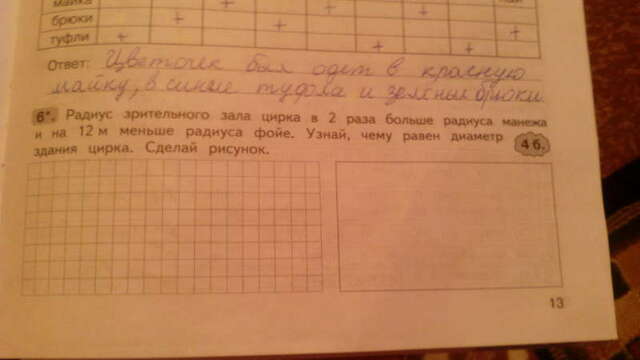 майка
брюки + + + +
туфли + + +
Ответ: Цветочек был одет в красную
майку, в синие туфли и зелёные брюки
6*. Радиус зрительного зала цирка в 2 раза больше радиуса манежа
и на 12 м меньше радиуса фойе. Узнай, чему равен диаметр
здания цирка. Сделай рисунок. 4 б.
13